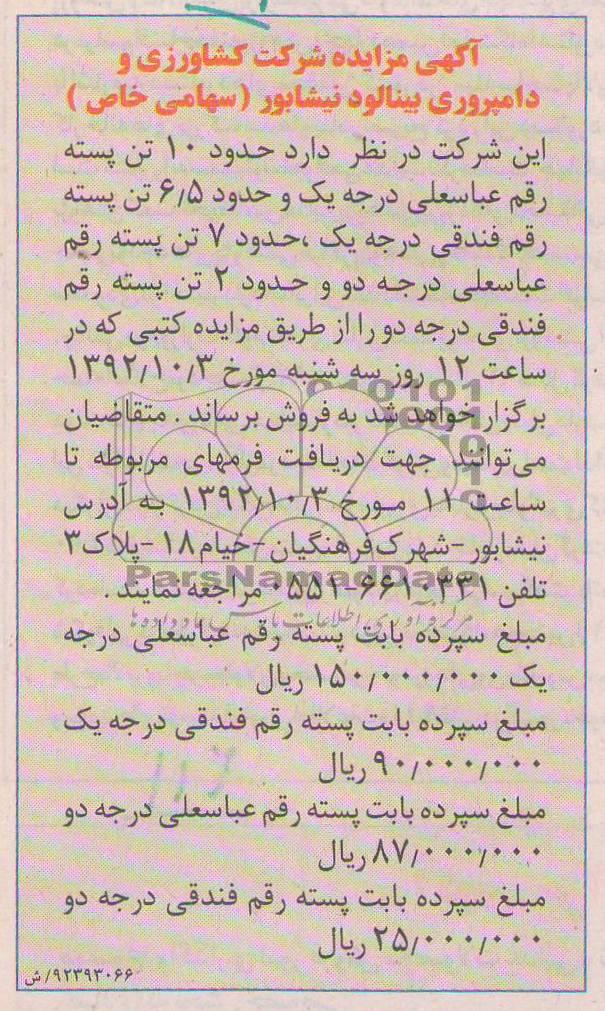 آگهی مزایده شرکت کشاورزی و
دامپروری بینالود نیشابور (سهامی خاص )
این شرکت در نظر دارد حدود ۱۰ تن پسته
رقم عباسعلی درجه یک و حدود ۶/۵ تن پسته
رقم فندقی درجه یک ،حدود ۷ تن پسته رقم
عباسعلی درجه دو و حدود ۲ تن پسته رقم
فندقی درجه دو را از طریق مزایده کتبی که در
ساعت ۱۲ روز سه شنبه مورخ ۱۳۹۲/۱۰/۳
برگزار خواهد شد به فروش برساند . متقاضیان
می‌توانند جهت دریافت فرمهای مربوطه تا
ساعت ۱۱ مورخ ۱۳۹۲/۱۰/۳ به آدرس
نیشابور-شهرک‌فرهنگیان-خیام۱۸-پلاک۳
تلفن ۶۶۱۰۳۳۱-۰۵۵۱ مراجعه نمایند .
ParsNamadData
مبلغ سپرده بابت پسته رقم عباسعلی درجه
یک ۱۵۰/۰۰۰/۰۰۰ ریال
مبلغ سپرده بابت پسته رقم فندقی درجه یک
۹۰/۰۰۰/۰۰۰ ریال
مبلغ سپرده بابت پسته رقم عباسعلی درجه دو
۸۷/۰۰۰/۰۰۰ ریال
مبلغ سپرده بابت پسته رقم فندقی درجه دو
۲۵/۰۰۰/۰۰۰ ریال
۹۲۳۹۳۰۶۶/ش